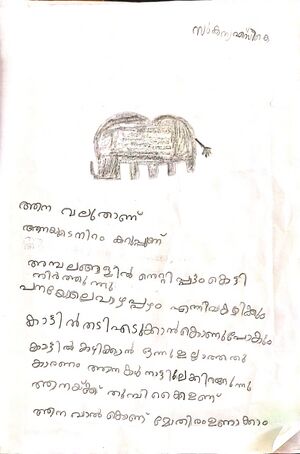 ആന വലുതാണ്
ആനയുടെ നിറം കറുപ്പാണ്
അമ്പലങ്ങളിൽ നെറ്റിപ്പട്ടം കെട്ടി
നിർത്തുന്നു
പനയോല പഴം എന്നിവ കഴിക്കും
കാട്ടിൽ തടി എടുക്കാൻ കൊണ്ടുപോകും
കാട്ടിൽ കഴിക്കാൻ ഒന്നും ഇല്ലാത്തതു
കാരണം ആനകൾ നാട്ടിലേക്കിറങ്ങുന്നു
ആനയ്ക്ക് തുമ്പി കൈ ഉണ്ട്
ആന വാൽ കൊണ്ട് മോതിരം ഉണാക്കാം